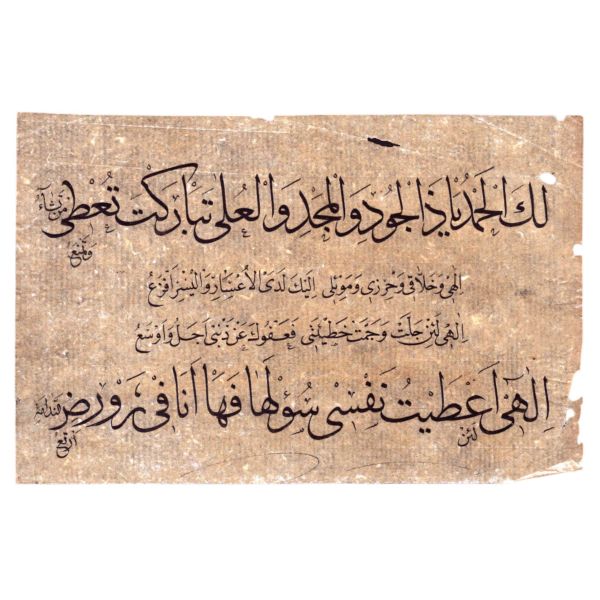 لك الحمد يا ذا الجود والمجد والعلى تباركت تعطى من تشاء
وتمنع
الهى وخلاقى وحرزى وموئلى اليك لدى الاعسار واليسر افزع
الهى لئن جلت وجمت خطيئتى فعفوك عن ذنبى اجل واوسع
الهى اعطيت نفسى سؤلها فها انا فى
لئن ارتع